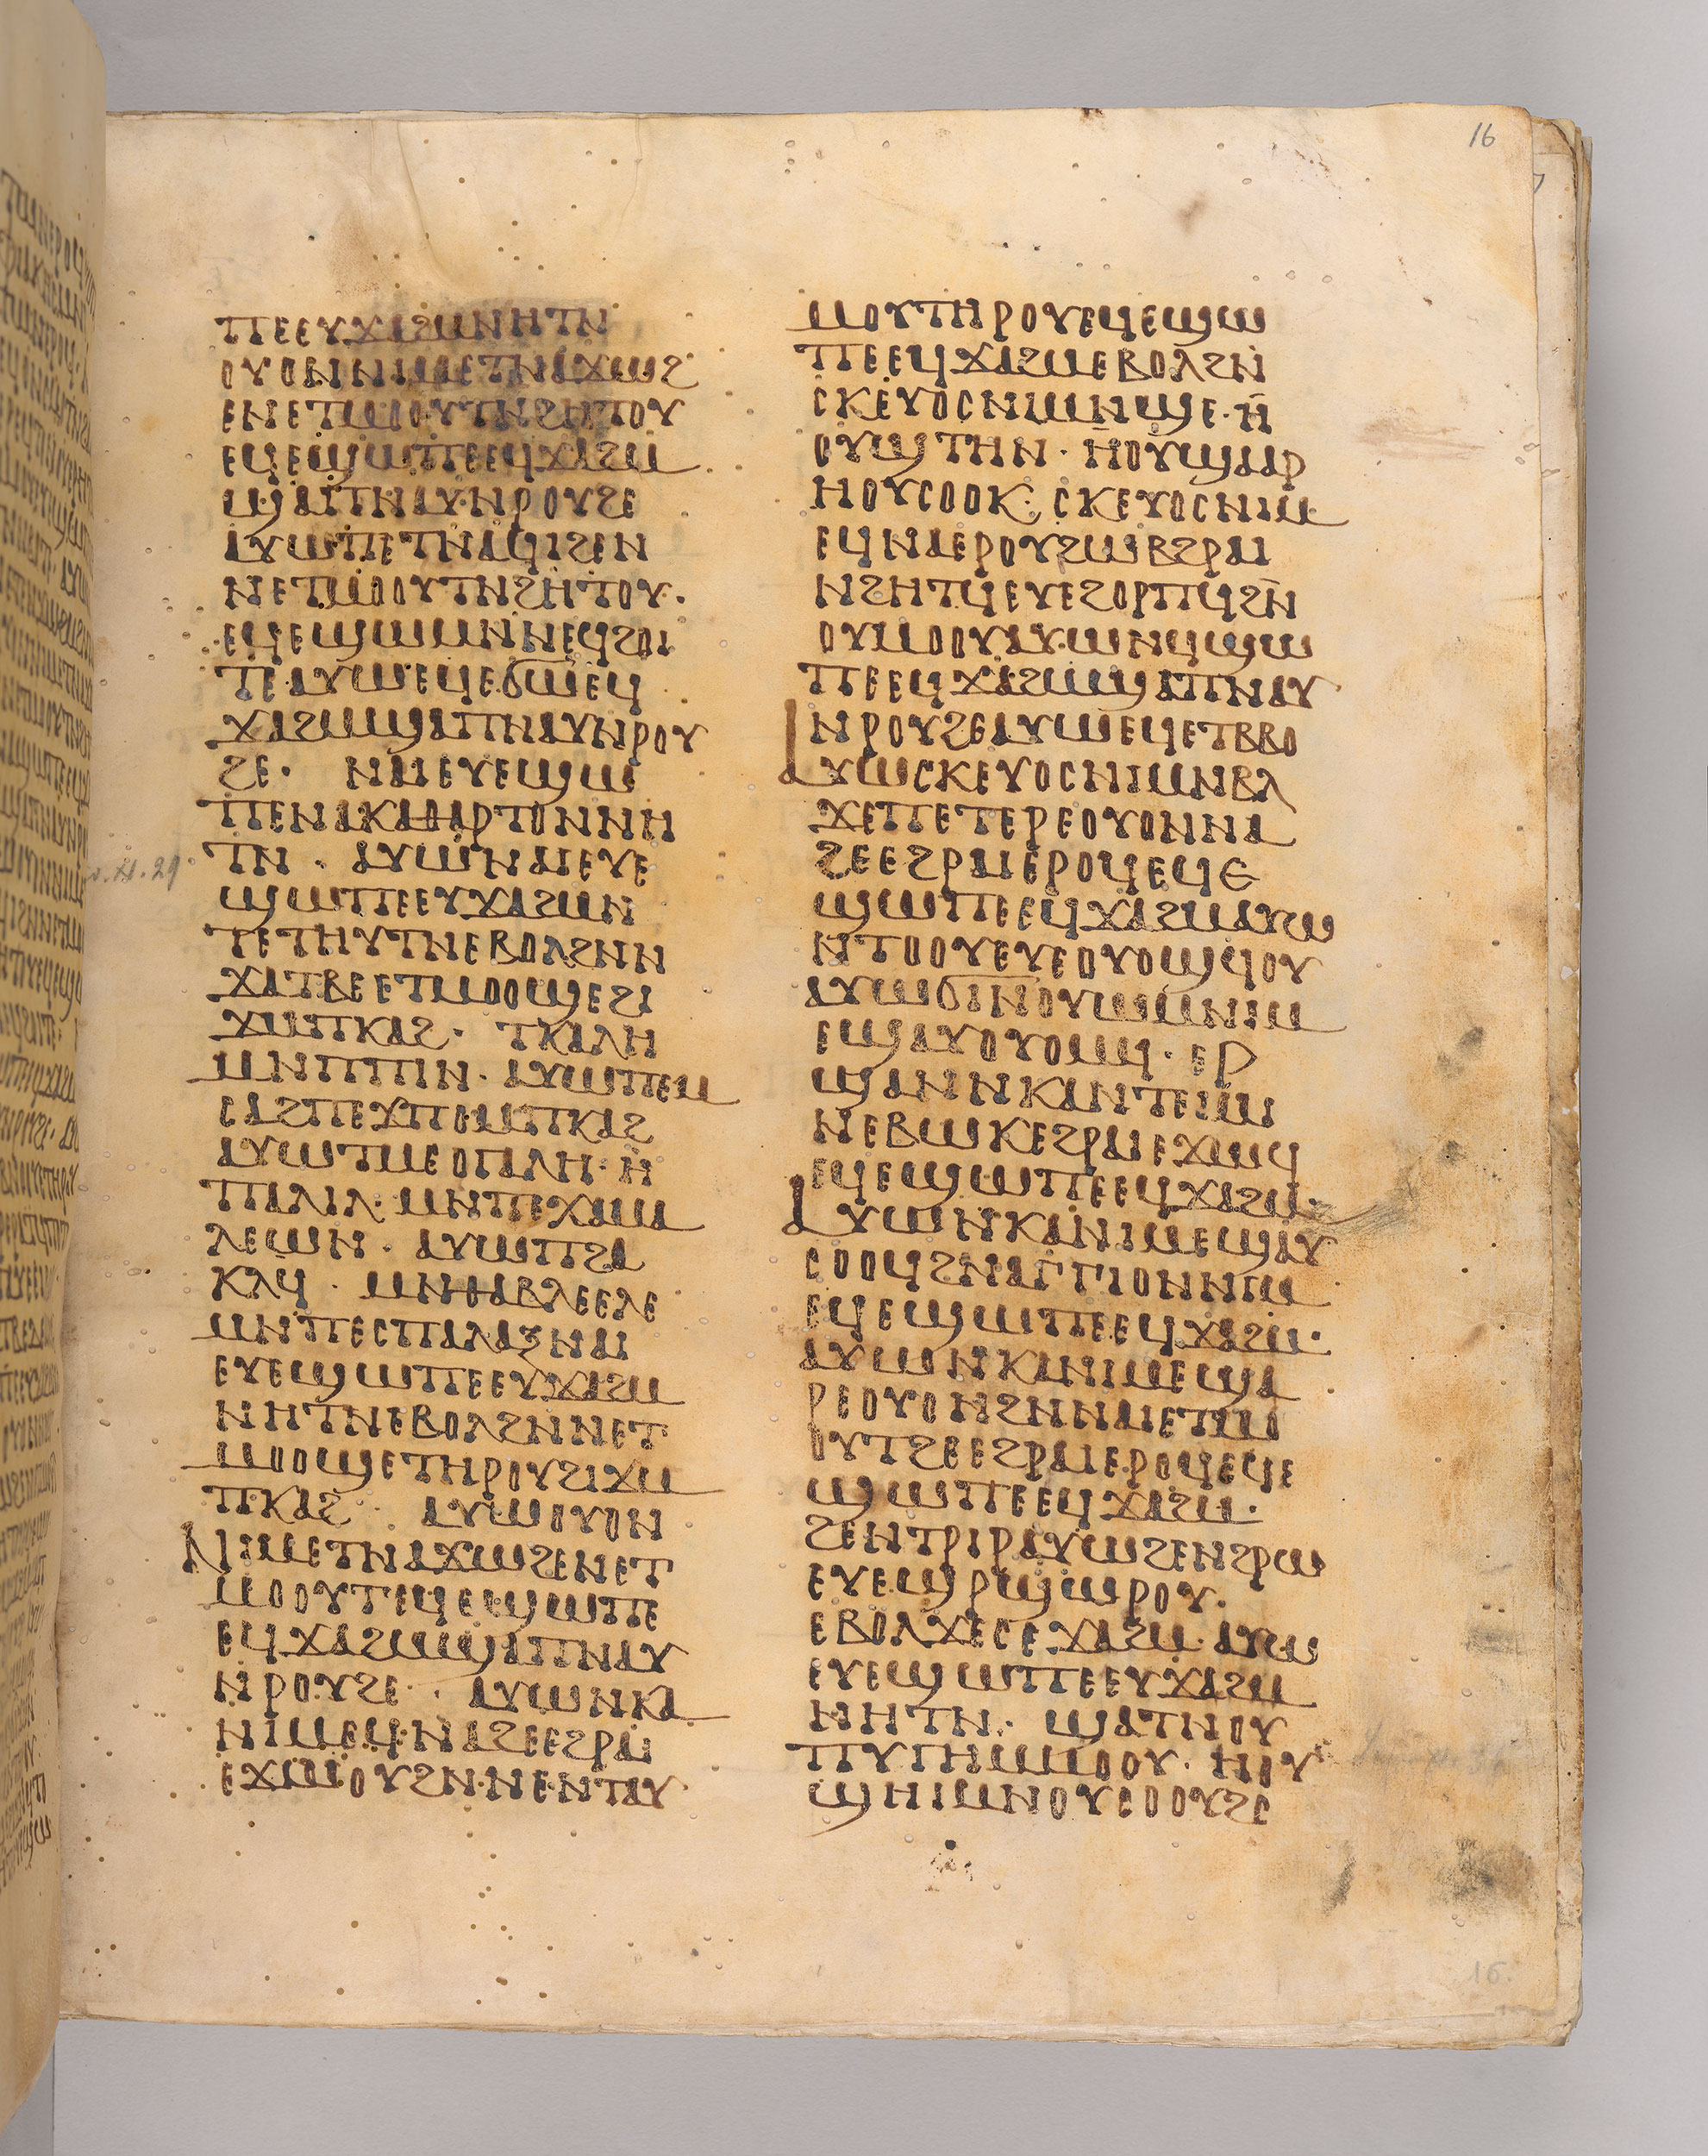 16
ⲡⲉⲉⲩϫⲁϩⲙⲛⲏⲧⲛ
ⲟⲩⲟⲛⲛⲓⲙⲉⲧⲛⲁϫⲱϩ
ⲉⲛⲉⲧⲙⲟⲟⲩⲧⲛϩⲏⲧⲟⲩ
ⲉϥⲉϣⲱⲡⲉⲉϥϫⲁϩⲙ
ϣⲁⲡⲛⲁⲩⲛⲣⲟⲩϩⲉ
ⲁⲩⲱⲡⲉⲧⲛⲁϥⲓϩⲉⲛ
ⲛⲉⲧⲙⲟⲟⲩⲧⲛϩⲏⲧⲟⲩ·
ⲉϥⲉϣⲱⲙⲛⲛⲉϥϩⲟⲓ
ⲧⲉ·ⲁⲩⲱⲉϥⲉϭⲱⲉϥ
ϫⲁϩⲙϣⲁⲡⲛⲁⲩⲛⲣⲟⲩ
ϩⲉ· ⲛⲁⲓⲉⲩⲉϣⲱ
ⲡⲉⲛⲁⲕⲁⲑⲁⲣⲧⲟⲛⲛⲏ
ⲧⲛ · ⲁⲩⲱⲛⲁⲓⲉⲩⲉ
ϣⲱⲡⲉⲉⲩϫⲁϩⲙⲛ
ⲧⲉⲧⲏⲩⲧⲛⲉⲃⲟⲗϩⲛⲛ
ϫⲁⲧⲃⲉⲉⲧⲙⲟⲟϣⲉϩⲓ
ϫⲙⲡⲕⲁϩ· ⲧⲕⲁⲗⲏ
ⲙⲛⲡⲡⲓⲛ· ⲁⲩⲱⲡⲉⲙ
ⲥⲁϩⲡⲉⲭⲡⲟⲙⲡⲕⲁϩ
ⲁⲩⲱⲧⲙⲉⲟⲅⲁⲗⲏ·ⲏ
ⲡⲁⲗⲓⲗ·ⲙⲛⲡⲉⲭⲁⲙⲁ
ⲗⲉⲱⲛ· ⲁⲩⲱⲡϩⲁ
ⲕⲗϥ· ⲙⲛⲑⲁⲃⲗⲉⲉⲗⲉ
ⲙⲛⲡⲉⲥⲡⲁⲗⲁⲝⲛⲁⲓ
ⲉⲩⲉϣⲱⲡⲉⲉⲩϫⲁϩⲙ
ⲛⲏⲧⲛⲉⲃⲟⲗϩⲛⲛⲉⲧ
ⲙⲟⲟϣⲉⲧⲏⲣⲟⲩϩⲓϫⲙ
ⲡⲕⲁϩ· ⲁⲩⲱⲟⲩⲟⲛ
ⲛⲓⲙⲉⲧⲛⲁϫⲱϩⲉⲛⲉⲧ
ⲙⲟⲟⲩⲧⲉϥⲉϣⲱⲡⲉ
ⲉϥϫⲁϩⲙϣⲁⲡⲛⲁⲩ
ⲛⲣⲟⲩϩⲉ· ⲁⲩⲱⲛⲕⲁ
ⲛⲓⲙⲉϥⲛⲁϩⲉⲉϩⲣⲁⲓ
ⲉϫⲱⲟⲩϩⲛⲛⲉⲛⲧⲁⲩ
ⲙⲟⲩⲧⲏⲣⲟⲩⲉϥⲉϣⲱ
ⲡⲉⲉϥϫⲁϩⲙⲉⲃⲟⲗϩⲛ
ⲥⲕⲉⲩⲟⲥⲛⲓⲙⲛϣⲉ·ⲏ
ⲟⲩϣⲧⲏⲛ· ⲏⲟⲩϣⲁⲁⲣ
ⲏⲟⲩⲥⲟⲟⲕ·ⲥⲕⲉⲩⲟⲥⲛⲓⲙ
ⲉϥⲛⲁⲉⲣⲟⲩϩⲱⲃϩⲣⲁⲓ
ⲛϩⲏⲧϥⲉⲩⲉϩⲟⲣⲡϥϩⲛ
ⲟⲩⲙⲟⲟⲩⲁⲩⲱⲛϥϣⲱ
ⲡⲉⲉϥϫⲁϩⲙϣⲁⲡⲛⲁⲩ
ⲛⲣⲟⲩϩⲉⲁⲩⲱⲉϥⲉⲧⲃⲃⲟ
ⲁⲩⲱⲥⲕⲉⲩⲟⲥⲛⲓⲙⲛⲃⲗ
ϫⲉⲡⲉⲧⲉⲣⲉⲟⲩⲟⲛⲛⲁ
ϩⲉⲉϩⲣⲁⲓⲉⲣⲟϥⲉϥⲉ
ϣⲱⲡⲉⲉϥϫⲁϩⲙⲁⲩⲱ
ⲛⲧⲟⲟⲩⲉⲩⲉⲟⲩⲟϣϥⲟⲩ
ⲁⲩⲱϭⲓⲛⲟⲩⲱⲙⲛⲓⲙ
ⲉϣⲁⲩⲟⲩⲟⲙϥ·ⲉⲣ
ϣⲁⲛⲛⲕⲁⲛⲧⲉⲓⲙⲓ
ⲛⲉⲃⲱⲕⲉϩⲣⲁⲓⲉϫⲱϥ
ⲉϥⲉϣⲱⲡⲉⲉϥϫⲁϩⲙ·
ⲁⲩⲱⲛⲕⲁⲛⲓⲙⲉϣⲁⲩ
ⲥⲟⲟϥϩⲛⲁⲅⲅⲓⲟⲛⲛⲓⲙ
ⲉϥⲉϣⲱⲡⲉⲉϥϫⲁϩⲙ·
ⲁⲩⲱⲛⲕⲁⲛⲓⲙⲉϣⲁ
ⲣⲉⲟⲩⲟⲛϩⲛⲛⲁⲓⲉⲧⲙⲟ
ⲟⲩⲧϩⲉⲉϩⲣⲁⲓⲉⲣⲟϥⲉϥⲉ
ϣⲱⲡⲉⲉϥϫⲁϩⲙ·
ϩⲉⲛⲧⲣⲓⲣⲁⲩⲱϩⲉⲛϩⲣⲱ
ⲉⲩⲉϣⲣϣⲱⲣⲟⲩ·
ⲉⲃⲟⲗϫⲉⲥⲉϫⲁϩⲙ·ⲁⲩⲱ
ⲉⲩⲉϣⲱⲡⲉⲉⲩϫⲁϩⲙ
ⲛⲏⲧⲛ· ϣⲁⲧⲛⲟⲩ
ⲡⲩⲅⲏⲙⲙⲟⲟⲩ·ⲏⲟⲩ
ϣⲏⲓⲙⲛⲟⲩⲥⲟⲟⲩϩⲥ
16.